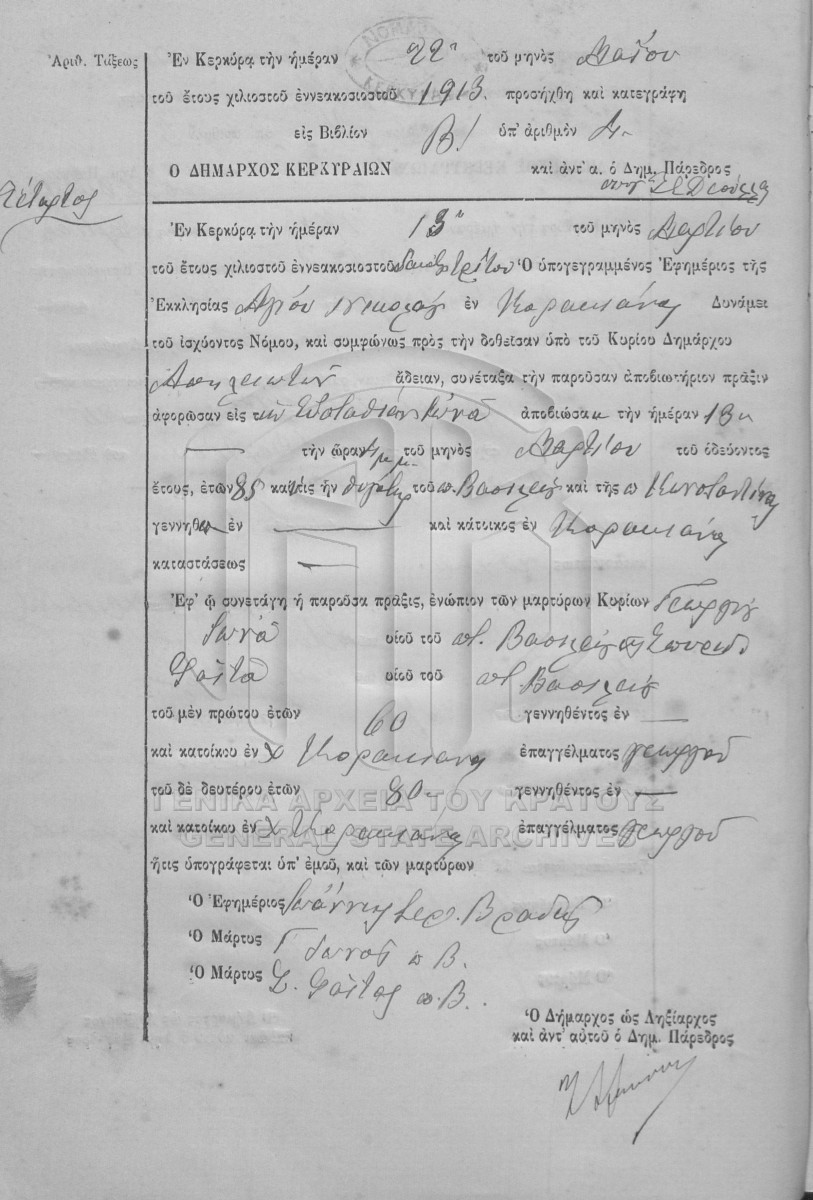 Ἀριθ. Τάξεως
Ἐν Κερκύρᾳ τὴν ἡμέραν 22 τοῦ μηνὸς Μαΐου
τοῦ ἔτους χιλιοστοῦ ἐννεακοσιοστοῦ 1913. προσήχθη καὶ κατεγράφη
εἰς Βιβλίον Β! ὑπ' ἀριθμὸν
Ο ΔΗΜΑΡΧΟΣ ΚΕΡΚΥΡΑΙΩΝ καὶ ἀντ' α. ὁ Δημ. Πάρεδρος
Τέταρτος
Ἐν Κερκύρᾳ τὴν ἡμέραν 13 τοῦ μηνὸς Μαρτίου
τοῦ ἔτους χιλιοστοῦ ἐννεακοσιοστοῦ δεκάτου τρίτου Ὁ ὑπογεγραμμένος Ἐφημέριος τῆς
Ἐκκλησίας Ἁγίου Νικολάου ἐν Κορακιάνα Δυνάμει
τοῦ ἰσχύοντος Νόμου, καὶ συμφώνως πρὸς τὴν δοθεῖσαν ὑπὸ τοῦ Κυρίου Δημάρχου
ἄδειαν, συνέταξα τὴν παροῦσαν ἀποβιωτήριον πρᾶξιν
ἀφορῶσαν εἰς τὴν Εὐσταθίαν Ἰωνᾶ ἀποβιώσασα τὴν ἡμέραν 13
τὴν ὥραν 4 μ.μ. τοῦ μηνὸς Μαρτίου τοῦ ὁδεύοντος
ἔτους, ἐτῶν 85 καὶ ἥτις ἦν θυγάτηρ τοῦ π. Βασιλείου καὶ τῆς π Κωνσταντίνας
γεννηθ ἐν — καὶ κάτοικος ἐν Κορακιάνα
καταστάσεως —
Ἐφ' ᾧ συνετάγη ἡ παροῦσα πρᾶξις, ἐνώπιον τῶν μαρτύρων Κυρίων Γεωργίου
Ἰωνᾶ υἱοῦ τοῦ π. Βασιλείου καὶ Σπυρίδ
Φαΐτα υἱοῦ τοῦ π. Βασιλείου
τοῦ μὲν πρώτου ἐτῶν 60 γεννηθέντος ἐν —
καὶ κατοίκου ἐν Χ Κορακιάνα ἐπαγγέλματος γεωργοῦ
τοῦ δὲ δευτέρου ἐτῶν 80 γεννηθέντος ἐν —
ΓΕΝΙΚΑ ΑΡΧΕΙΑ ΤΟΥ ΚΡΑΤΟΥΣ
καὶ κατοίκου ἐν Χ Κορακιάνα ἐπαγγέλματος γεωργοῦ
GENERAL STATE ARCHIVES
ἥτις ὑπογράφεται ὑπ' ἐμοῦ, καὶ τῶν μαρτύρων
Ὁ Ἐφημέριος Ἰωάννης Ἱερ. Βραδῆς
Ὁ Μάρτυς Γ Ἰωνᾶς π Β.
Ὁ Μάρτυς Σ. Φαΐτας π. Β.
Ὁ Δήμαρχος ὡς Ληξίαρχος
καὶ ἀντ' αὐτοῦ ὁ Δημ. Πάρεδρος